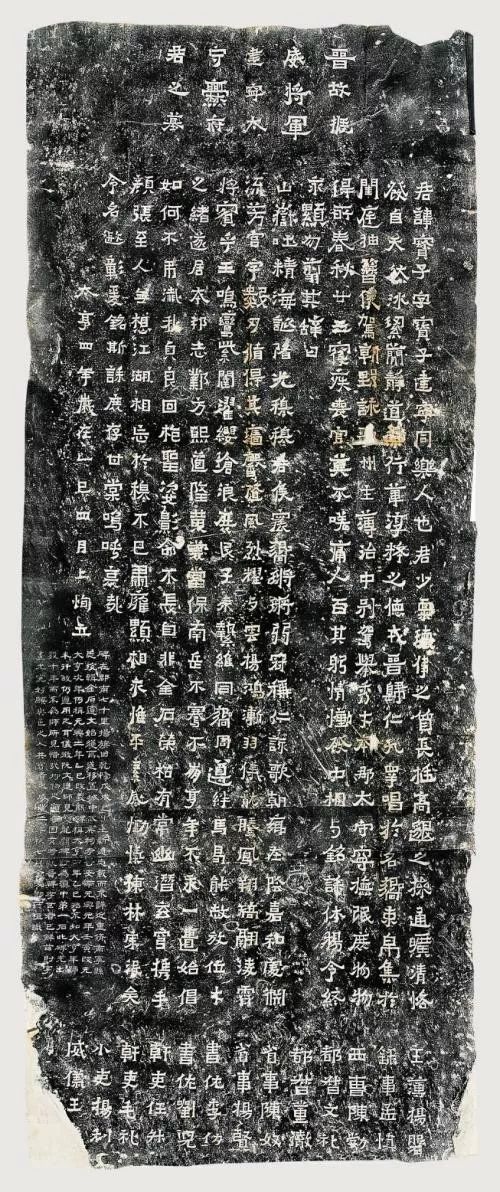 晉故振
威將軍
建寧太
守爨府
君之墓
君諱寶子字寶子建寧同樂人也君少稟瓌偉之質長挺高邈之操通曠清恪
發自天然冰絜簡靜道兼行葦淳粹之德戎晉歸仁九皋唱於名嚮束帛集於
閨庭抽簪俟駕朝野詠歌州主簿治中別駕舉秀才本郡太守寧撫氓庶物物
得所春秋廿五寑疾喪官莫不嗟痛人百其躬情慟發中相與銘誄休揚令終
永顯勿翦其辭曰
山嶽吐精海誕陼光穆穆君侯震嚮鏘鏘弱冠稱仁詠歌朝鄉在陰嘉和處淵
流芳宮宇數仞循得其墻馨隨風烈耀與雲揚鴻漸羽儀龍騰鳳翔矯翮淩霄
將賓乎王鳴鸞紫闥濯纓滄浪庶民子來縶維同嚮周遵絆馬曷能赦放位才
之緒遂居本邦志鄴方熙道隆黃裳當保南岳不騫不崩享年不永一匱始倡
如何不弔殲我貞良回抱聖姿影命不長自非金石榮枯有常幽潛玄穹攜手
顏張至人無想江湖相忘於穆不已肅雍顯相永惟平素感慟忾慷林宗沒矣
令名遐彰爰銘斯誄庶存甘棠嗚呼哀哉
大亨四年歲在乙巳四月上恂立
主簿楊磐
錄事孟慎
西曹陳勃
都督文礼
都督董徹
省事陳奴
省事楊賢
書佐李仂
書佐劉兒
幹吏任升
幹吏毛礼
小吏楊利
威儀王